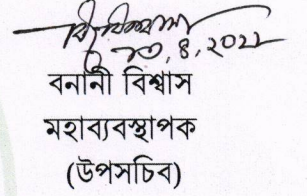 ২৩.৪.২০২২
বনানী বিশ্বাস
মহাব্যবস্থাপক
(উপসচিব)